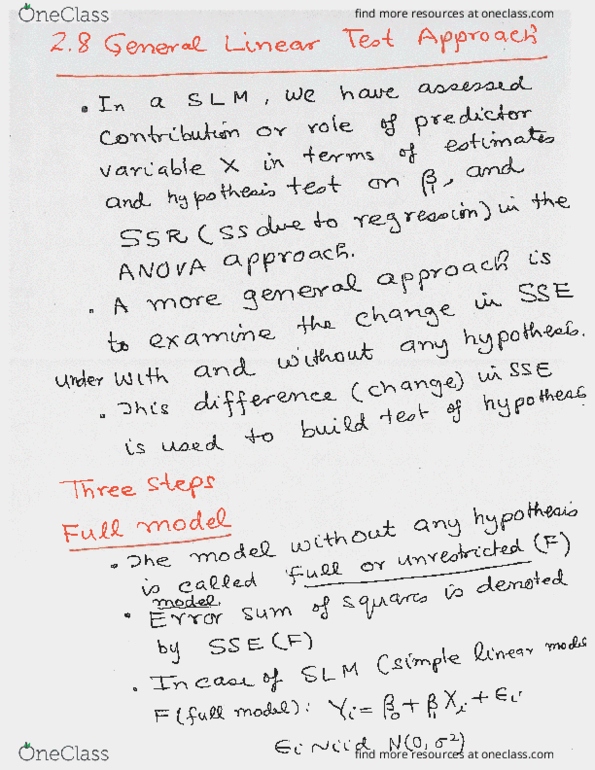 OneClass
find more resources at oneclass.com
2.8 General Linear Test Approach
• In a SLM, we have assessed
contribution or role of predictor
variable X in terms of estimates
and hypothesis test on β₁, and
SSR (SS due to regression) in the
ANOVA approach.
• A more general approach is
to examine the change in SSE
under with and without any hypothesis.
• This difference (change) in SSE
is used to build test of hypothesis
Three steps
Full model
• The model without any hypothesis
is called full or unrestricted (F)
model.
• Error sum of squares is denoted
by SSE(F)
• In case of SLM (simple linear model
F (full model): Yi = β₀ + β₁ Xi + Ei
Ei ~ iid N(0, σ²)
OneClass
find more resources at oneclass.com